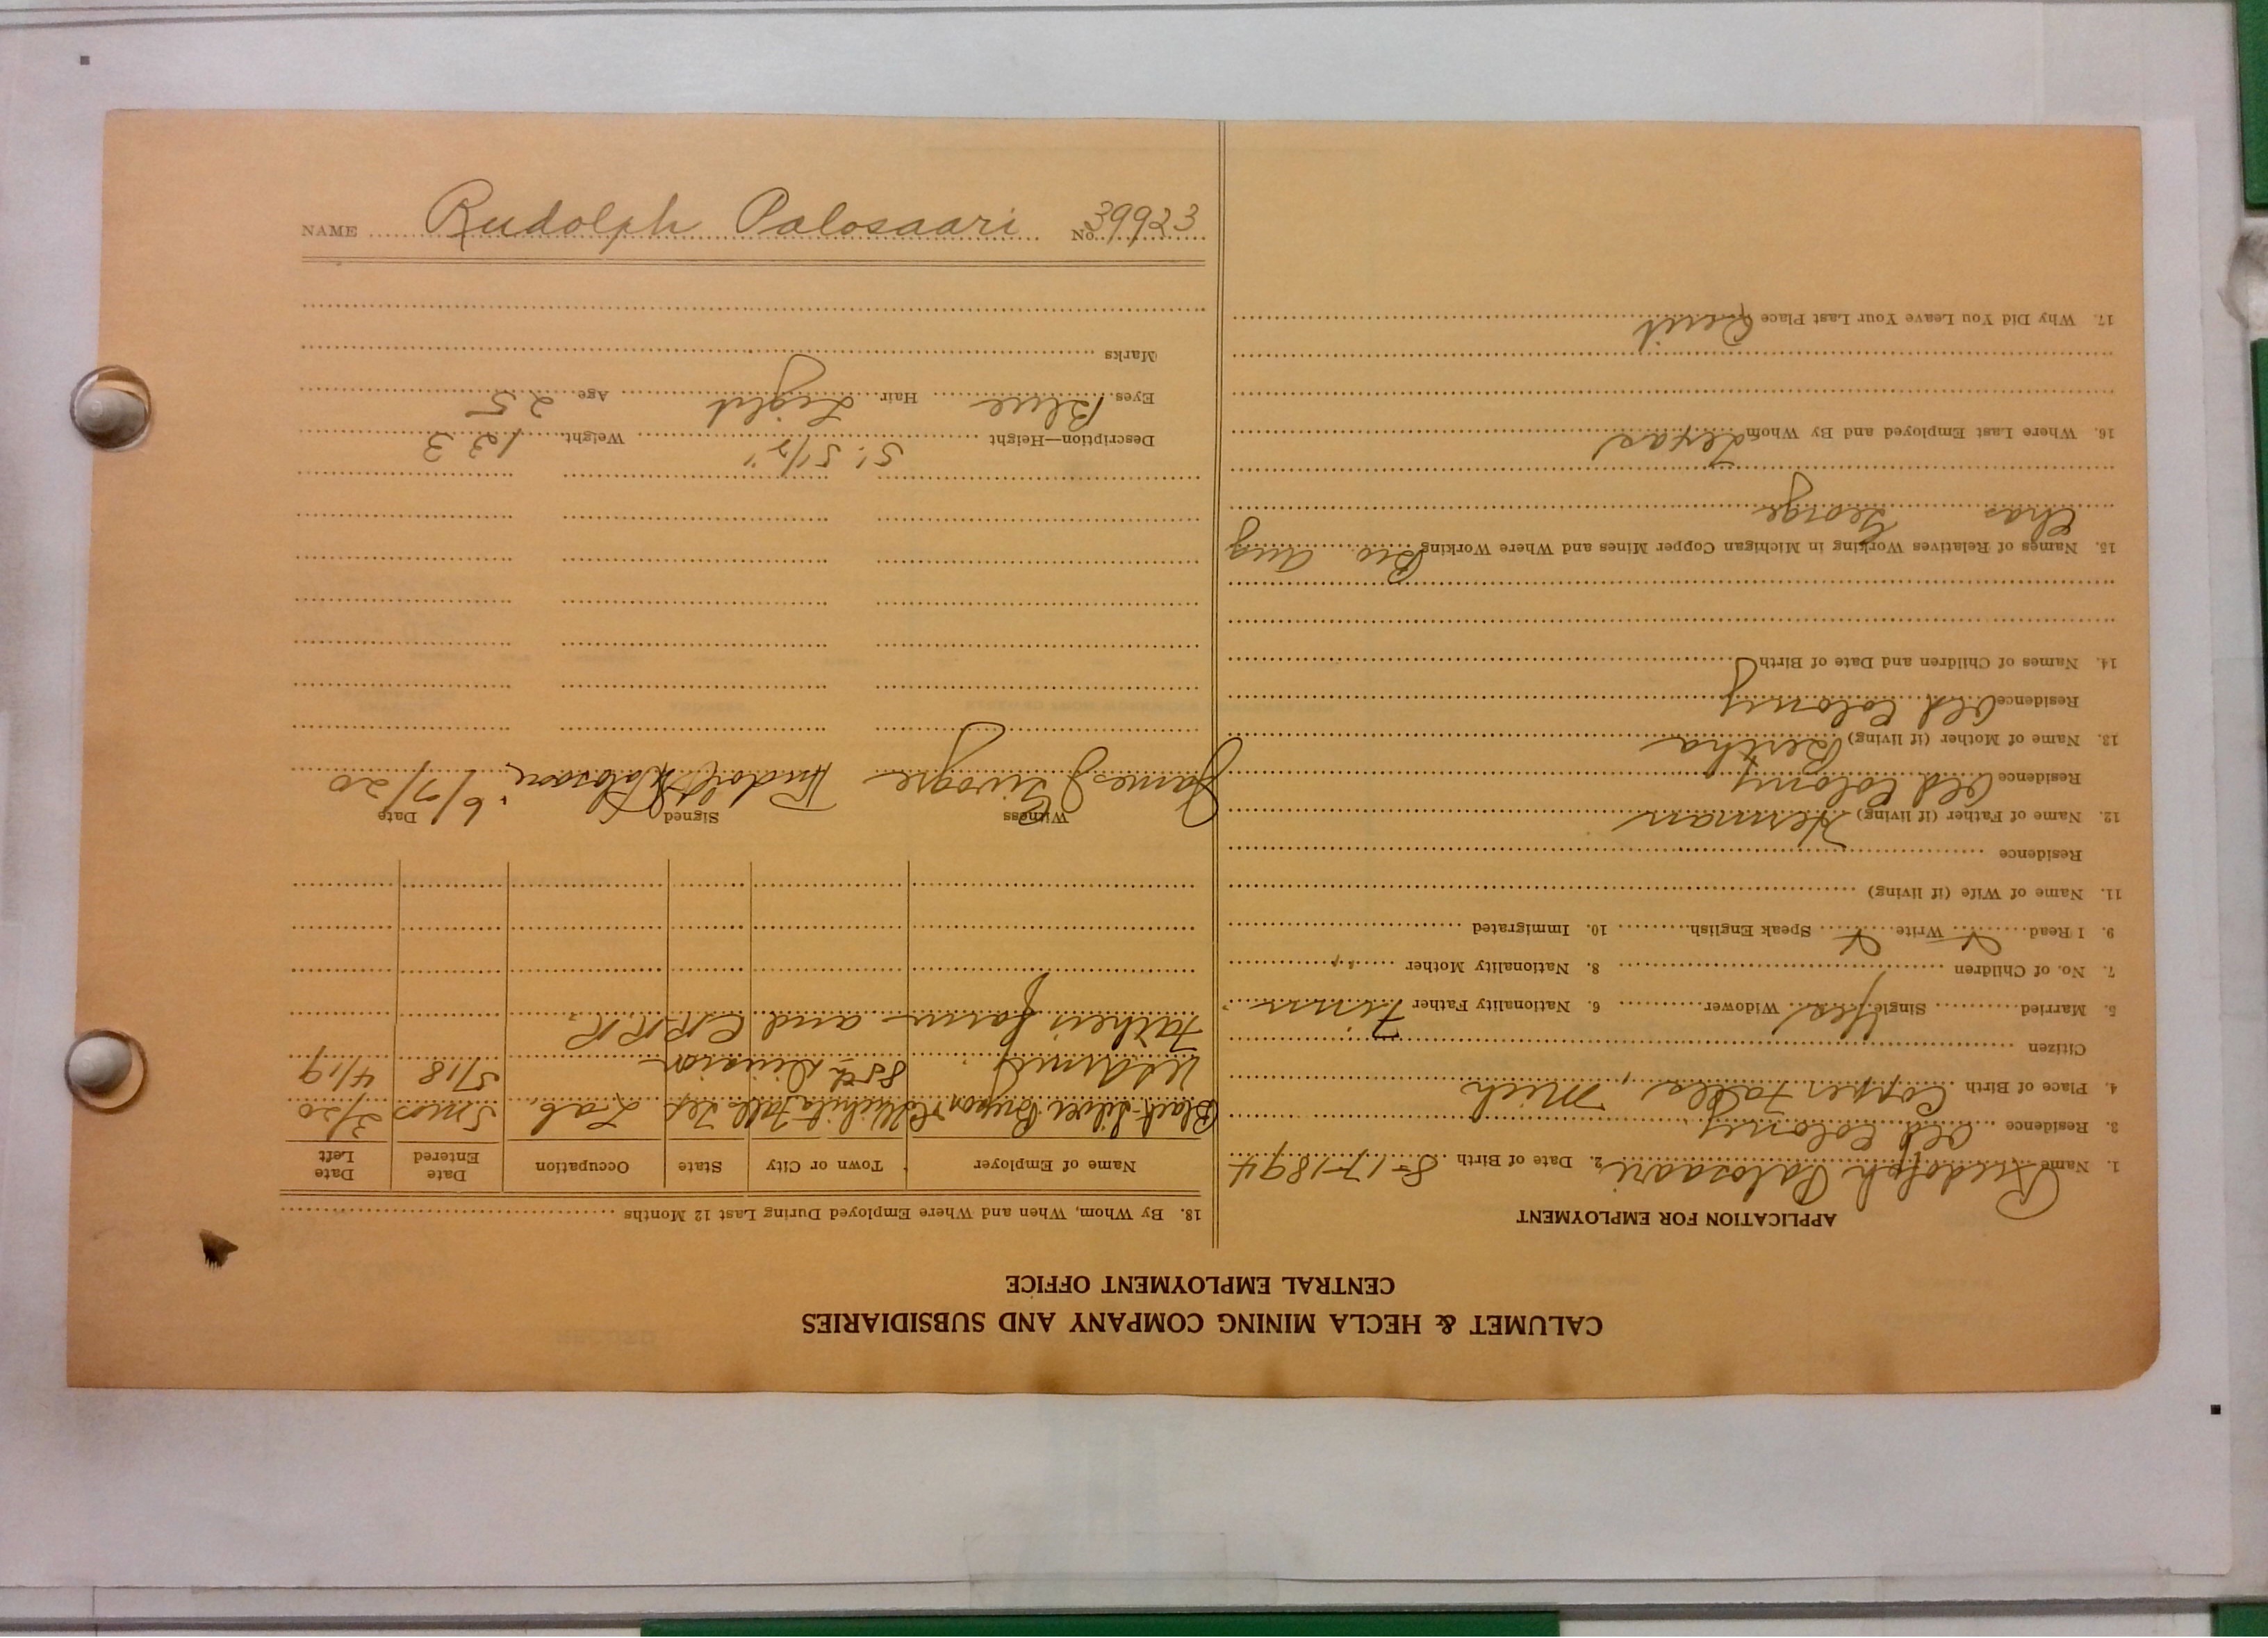 NAME Rudolph Palosaari No. 39923
CALUMET & HECLA MINING COMPANY AND SUBSIDIARIES
CENTRAL EMPLOYMENT OFFICE
APPLICATION FOR EMPLOYMENT
1. Name Rudolph Palosaari 2. Date of Birth 8-17-1894
3. Residence Old Colony
4. Place of Birth Copper Falls, Mich
Citizen
5. Married Single Yes Widower 6. Nationality Father Finn
7. No. of Children 8. Nationality Mother "
9. I Read Write Speak English 10. Immigrated
11. Name of Wife (if living)
Residence
12. Name of Father (if living) Herman
Residence Old Colony
13. Name of Mother (if living) Bertha
Residence Old Colony
14. Names of Children and Date of Birth
15. Names of Relatives Working in Michigan Copper Mines and Where Working Bro Aug
Chas George
16. Where Last Employed and By Whom Texas
17. Why Did You Leave Your Last Place Quit
18. By Whom, When and Where Employed During Last 12 Months
Name of Employer Town or City State Occupation Date Entered Date Left
Black-Silver Co Wichita Falls Tex Lab. 5 mos 3/20
US Army 85th Division 5/18 4/19
Fathers farm and C.R.R.
Witness Signed Date
James Rudolf Palosaari 6/7/20
Description—Height 5' 5 1/2" Weight 123
Eyes Blue Hair Light Age 25
Marks